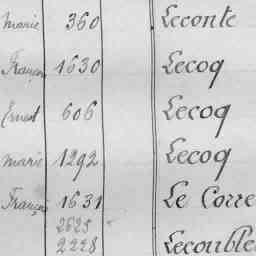 Marie 360 Leconte
François 1630 Lecoq
Ernest 606 Lecoq
Marie 1292 Lecoq
François 1631 Le Corre
2625
2228 Lecouble